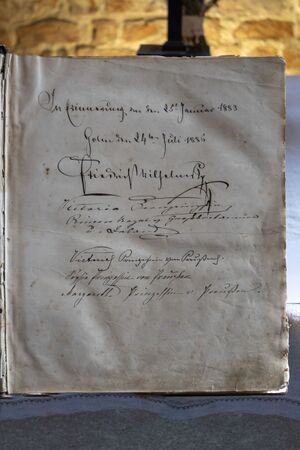 In Erinnerung an den 25t Januar 1883
Golm den 24ten Juli 1886
Friedrich Wilhelm
Victoria Kronprinzessin
Princess Royal of Great Britain and
Ireland
Victoria Prinzessin von Preußen.
Sophie Prinzessin von Preußen
Margareth Prinzessin v. Preußen.